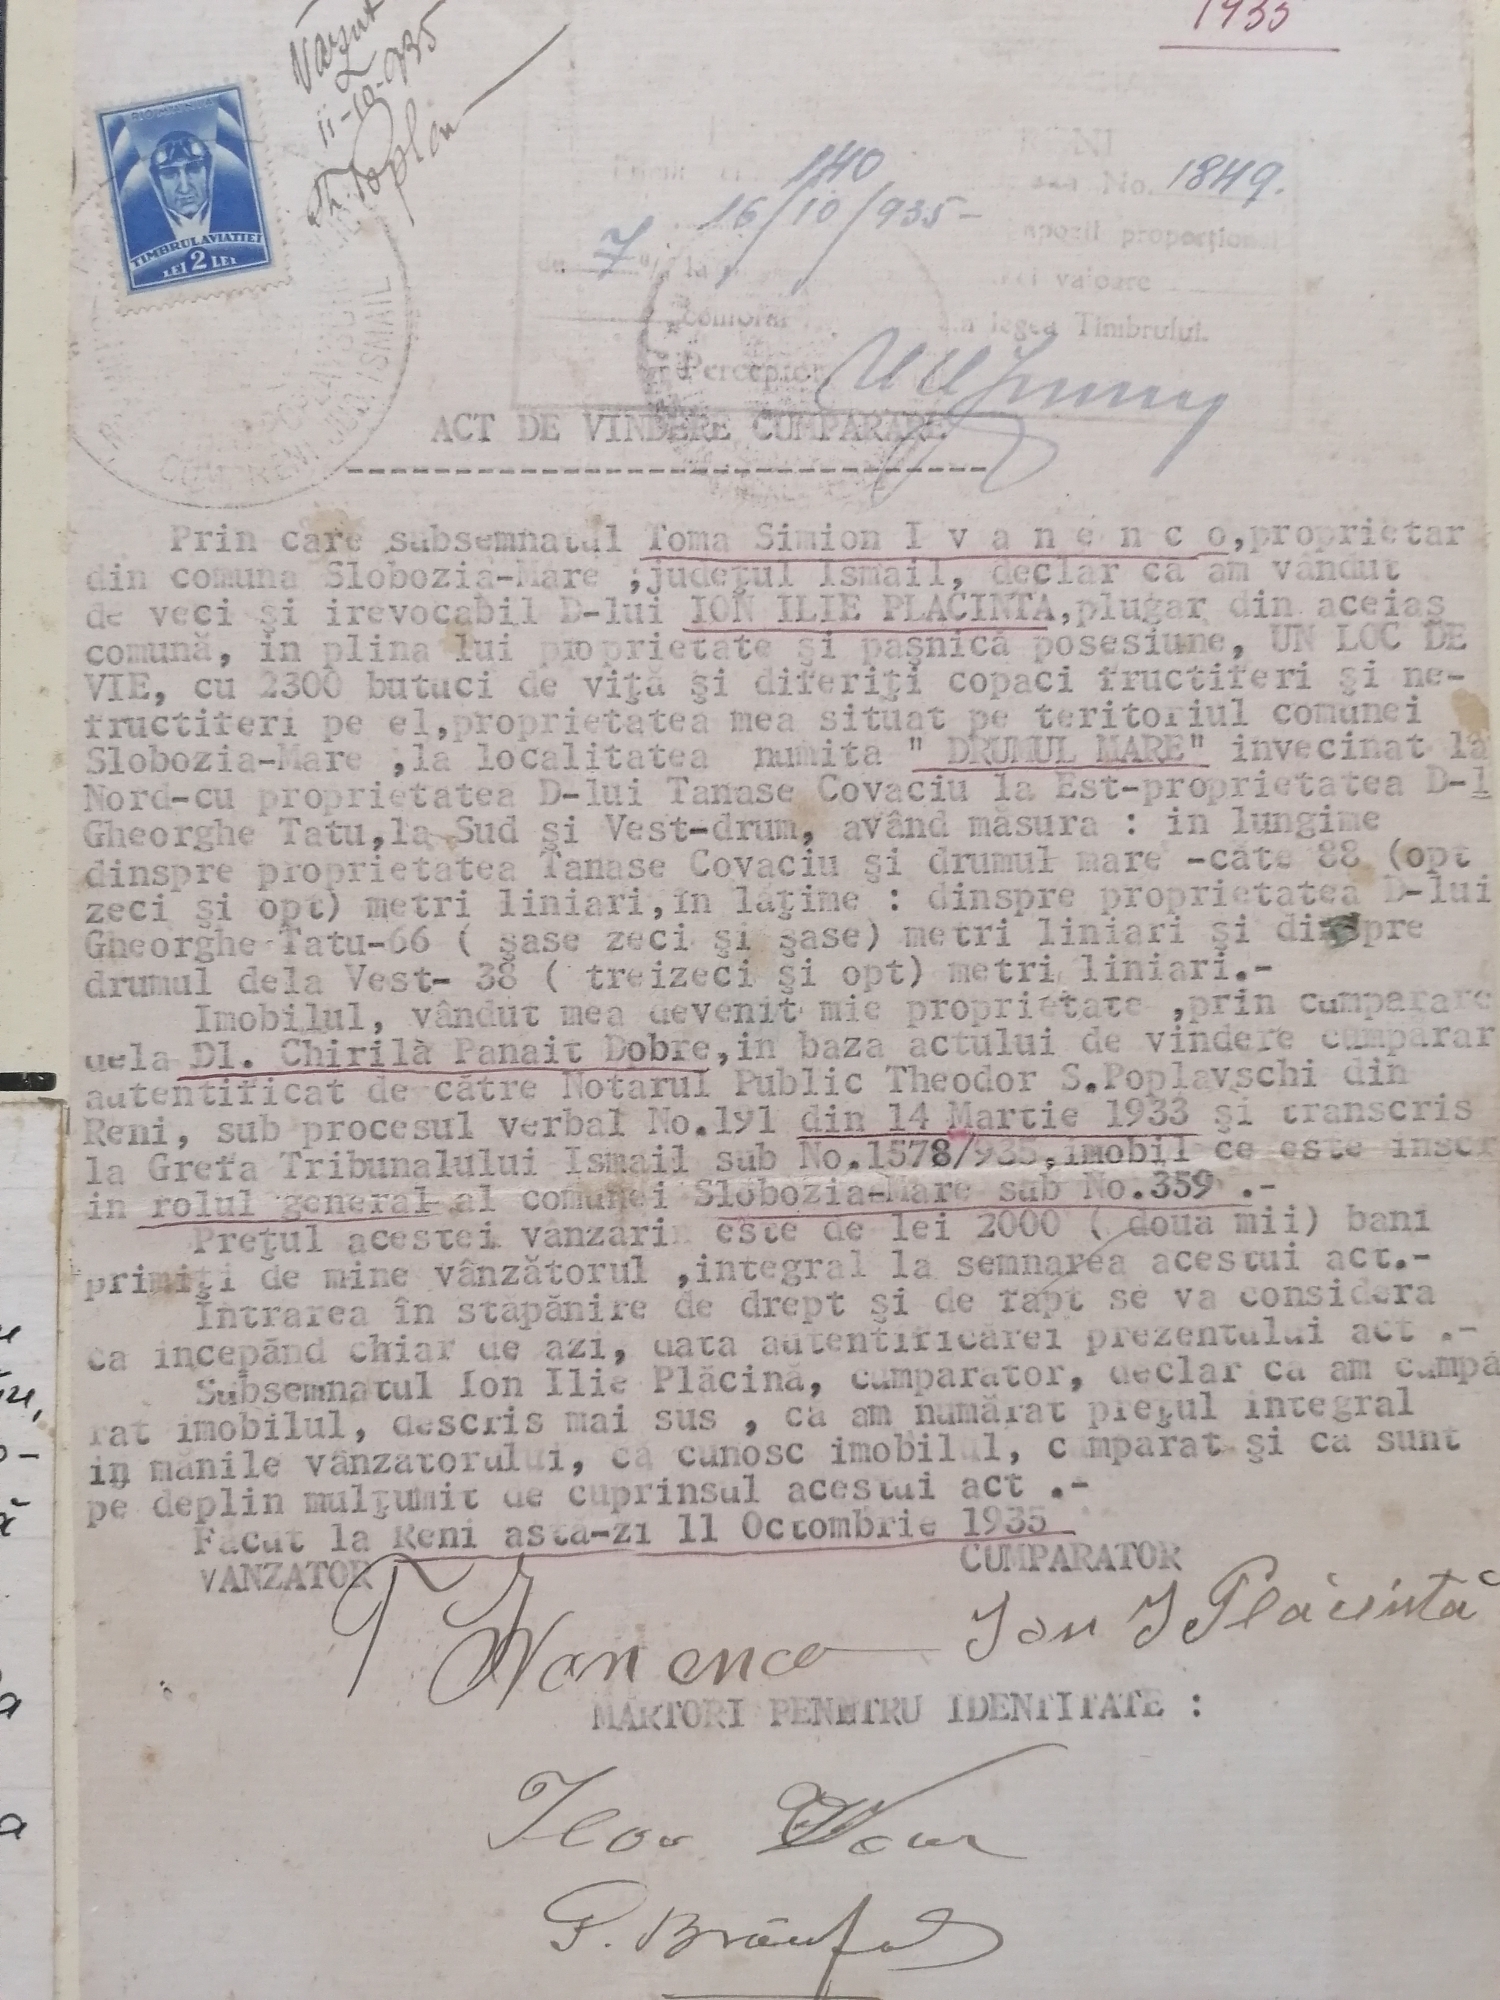 1935
ROMANIA
TIMBRUL AVIATIEI
LEI 2 LEI
11-10-935
RENI
140
No. 1849.
16/10/935-
proporțional
de 7 % la valoare
legea Timbrului.
Perceptor
COM. RENI JUD. ISMAIL
ACT DE VINDERE CUMPARARE
Prin care subsemnatul Toma Simion I v a n e n c o,proprietar
din comuna Slobozia-Mare ;judeţul Ismail, declar că am vândut
de veci şi irevocabil D-lui ION ILIE PLACINTA,plugar din aceiaş
comună, in plina lui proprietate şi paşnică posesiune, UN LOC DE
VIE, cu 2300 butuci de viţă şi diferiţi copaci fructiferi şi ne-
fructiferi pe el,proprietatea mea situat pe teritoriul comunei
Slobozia-Mare ,la localitatea numita " DRUMUL MARE" invecinat la
Nord-cu proprietatea D-lui Tanase Covaciu la Est-proprietatea D-l
Gheorghe Tatu,la Sud şi Vest-drum, având măsura : in lungime
dinspre proprietatea Tanase Covaciu şi drumul mare -căte 88 (opt
zeci şi opt) metri liniari,în lăţime : dinspre proprietatea D-lui
Gheorghe Tatu-66 ( şase zeci şi şase) metri liniari şi dinspre
drumul dela Vest- 38 ( treizeci şi opt) metri liniari.-
Imobilul, vândut mea devenit mie proprietate ,prin cumparare
dela Dl. Chirilă Panait Dobre,in baza actului de vindere cumparar
autentificat de către Notarul Public Theodor S.Poplavschi din
Reni, sub procesul verbal No.191 din 14 Martie 1933 şi transcris
la Grefa Tribunalului Ismail sub No.1578/935,imobil ce este inscr
in rolul general al comunei Slobozia-Mare sub No.359 .-
Preţul acestei vânzări este de lei 2000 ( două mii) bani
primiţi de mine vânzătorul ,integral la semnarea acestui act.-
Intrarea în stăpănire de drept şi de fapt se va considera
ca incepănd chiar de azi, data autentificărei prezentului act .-
Subsemnatul Ion Ilie Plăcină, cumparator, declar că am cumpă
rat imobilul, descris mai sus , că am numărat preţul integral
in mănile vânzatorului, că cunosc imobilul, cumparat şi ca sunt
pe deplin mulţumit de cuprinsul acestui act .-
Făcut la Reni astă-zi 11 Octombrie 1935
VANZATOR CUMPARATOR
T Ivanenco Ion I Plăcintă
MARTORI PENTRU IDENTITATE :